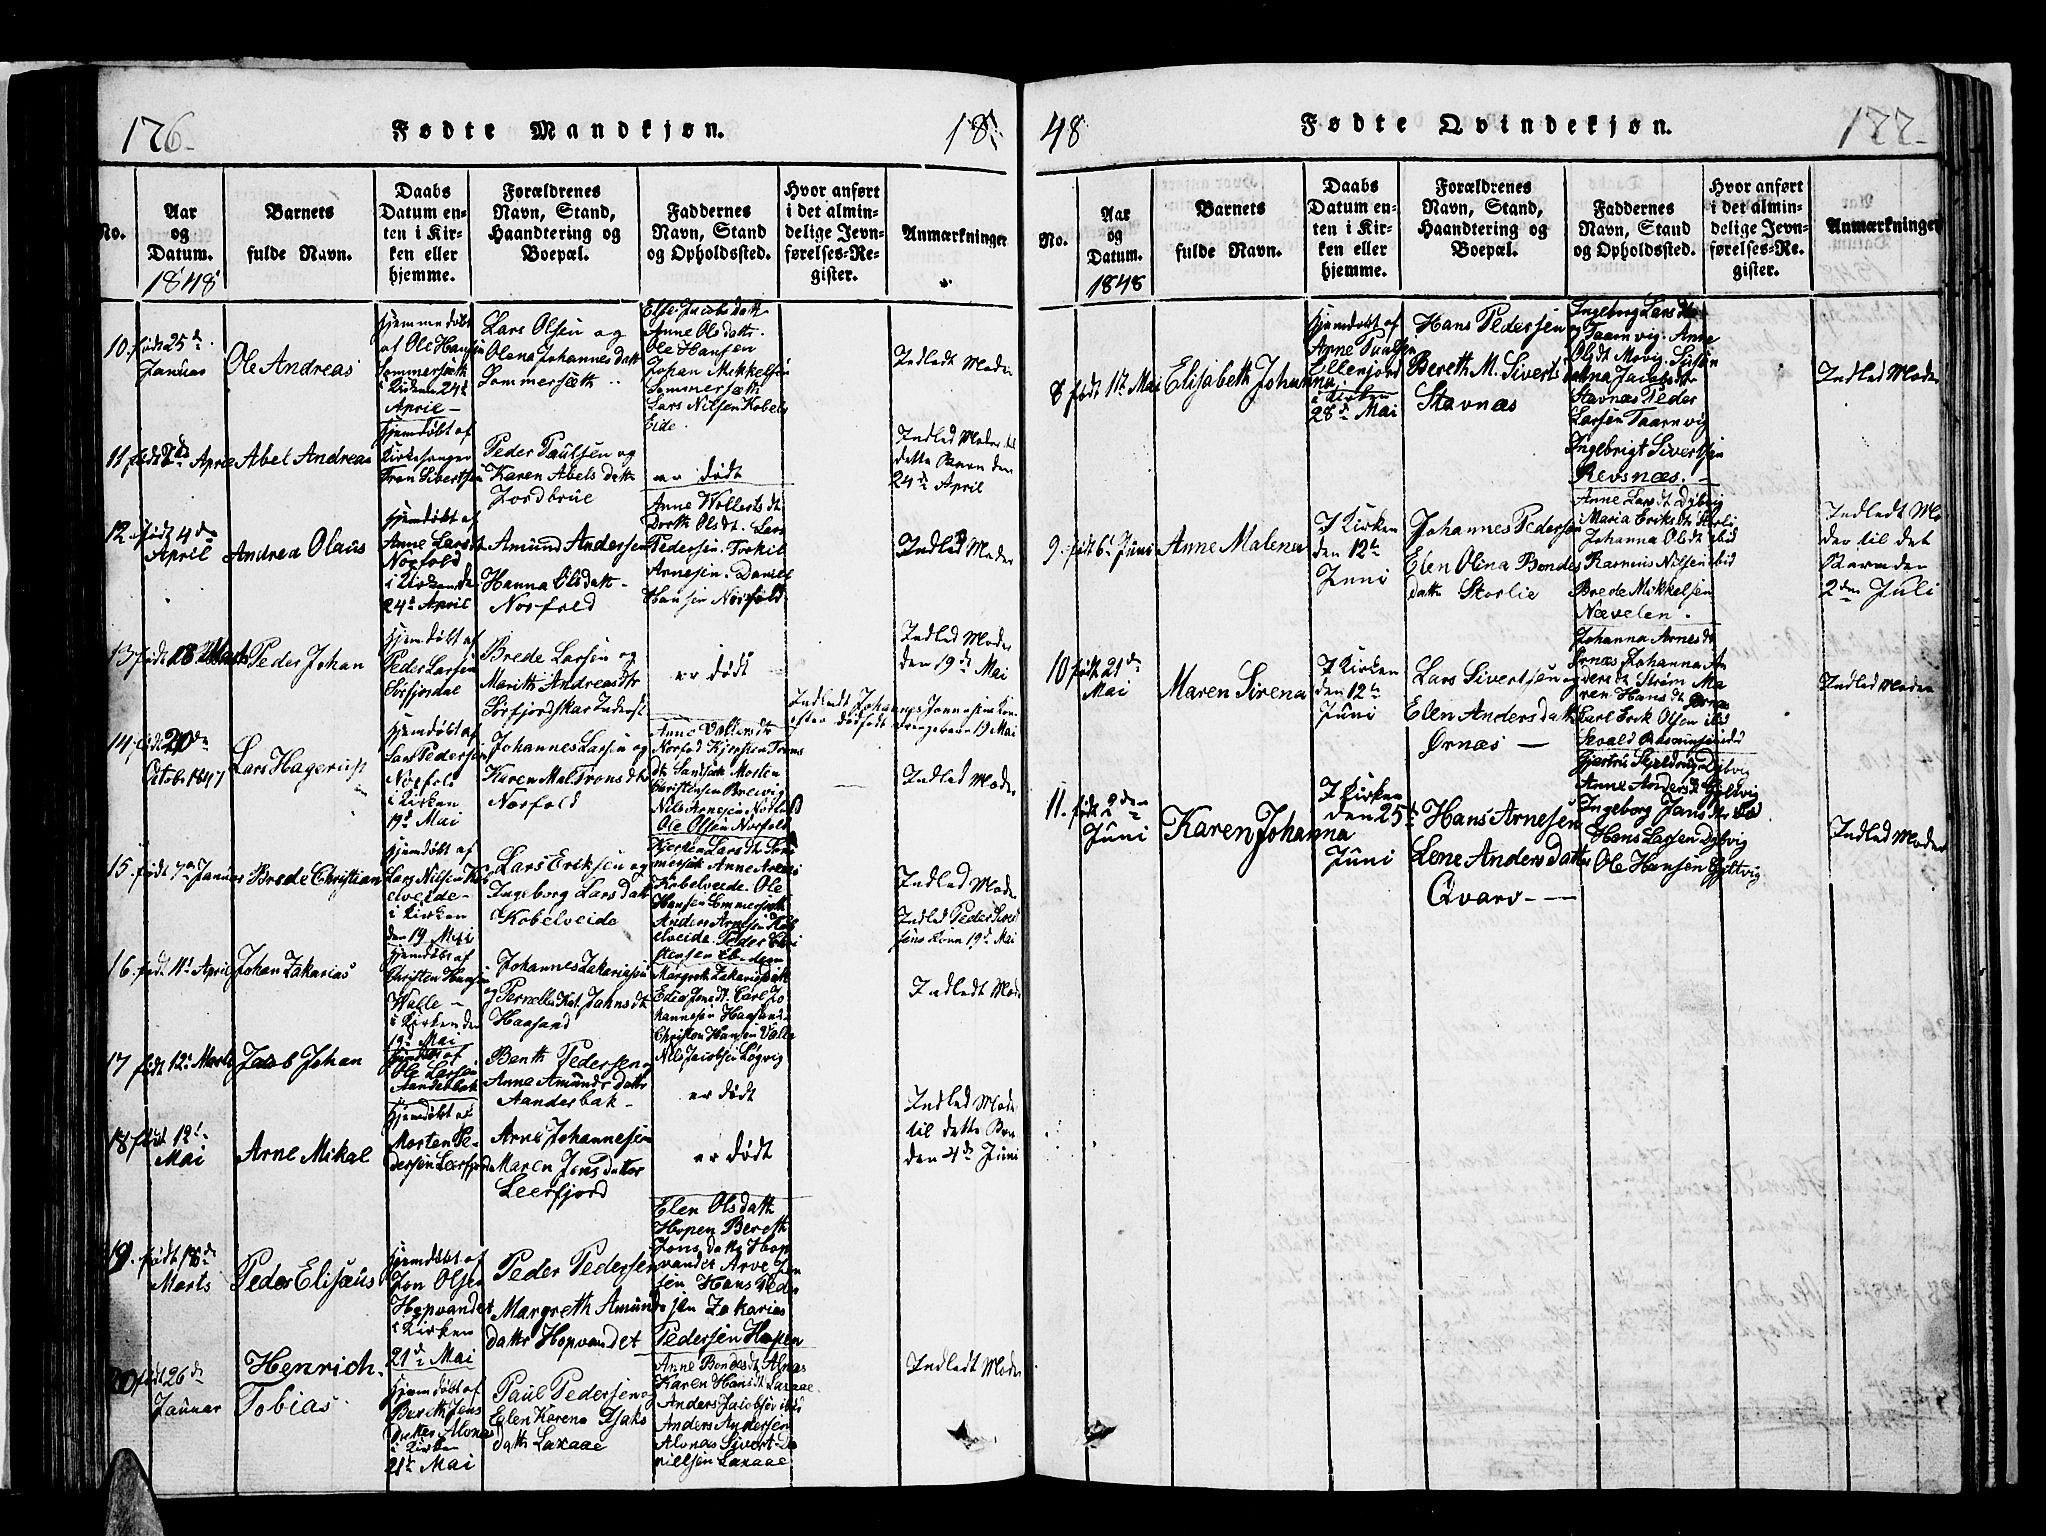 176
Fødte Mandkjøn.
18
No.
Aar
og
Datum.
1848
Barnets
fulde Navn.
Daabs
Datum en-
ten i Kir-
ken eller
hjemme.
Forældrenes
Navn, Stand,
Haandtering og
Boepæl.
Faddernes
Navn, Stand
og Opholdssted.
Hvor anført
i det almin-
delige Jevn-
førelses-Re-
gister.
Anmærkninger
10. født 25de
Januar
Ole Andreas
Hjemmedøbt
af Ole Hansen
Sommersæth
i Kirken 24d
April
Lars Olsen og
Olena Johannesdatt
Sommersæth
Else Jacobsdatt
Anne Olsdatt.
Ole Hansen
Johan Mikkelsen
Sommersæth
Lars Nilsen Kobelv
Eide.
Indledt Moder
11 født April
Abel Andreas
Hjemdøbt af
Kirkesanger
Tron Sibertsen
Peder Paulsen og
Karen Abelsdatt
Jordbrue
er død
Indled Moder til
dette Barn den
24d April
12. født 4de
April
Andrea Olaus
Hjemdøbt af
Anne Larsdt
Norfold
i Kirken de
24d April
Amund Andersen
Hanna Olsdatt
Norfold
Anne Wollertsdt
Dorth Olsdt. Lars
Pedersen. Torkil
Arnesen. Daniel
Hansen Norfold
Indled Moder
13 født 18 Marts
Peder Johan
Hjemdøbt af
Peder Larsen
Sørfjordal
Brede Larsen og
Marith Andreasdtr
er død
Indled Moder
den 19d Mai
14. født 20de
October 1847
Lars Hagerup
Hjemdøbt af
Lars Pedersen
Norfold
i Kirken
19d Mai
Johannes Larsen og
Karen Mal. Tronsdtr
Norfold
Nils Arnesen Norfold
Ole Olsen Norfold
Indled Moder
15. født 7de Januar
Brede Christian
Hjemdøbt af
Lars Nilsen Kob
elveide
i Kirken
den 19 Mai
Lars Eriksen og
Ingeborg Larsdatt
Kobelveide
Kobelveide. Ole
Hansen Sommersæth
Anders Arnesen Kob
elveide. Peder Chri
stensen
Indled Moder
16. født 11d April
Johan Zakarias
Hjemdøbt af
Christen Hansen
Walle
i Kirken den
19d Mai
Johannes Zakariesen
og Pernella Kat. Jahnsdt
Haasand
Margreth Zakariasdatt
Carl Jo
hannesen Haasand
Christen Hansen Valle
Nils Jacobsen Løgvig
Indledt Mode
17 født 12d Marts
Jacob Johan
Hjemdøbt af
Ole Larsen
Aanderbak
Benth Pedersen og
Anna Amundsdatt
Aanderbak
er død
18 født 12d
Mai
Arne Mikal
Hjemdøbt af
Morten Pe-
dersen Leerfjord
Arne Johannesen
Maren Jensdatter
Leerfjord
er død
Indled Mode
til dette Bar
den 4de Juni
19. født 18de
Marts
Peder Elisæus
Hjemdøbt af
Jon Olsen
Hopvandet
i Kirken
21d Mai
Peder Pedersen
Margreth Amunds
datt Hopvandet
Elen Olsdatt
Hopen Bereth
Jonsdatt Hop
vandet Arve Jen
sen Hans Peder
sen Zakarias
Pedersen Hopen
20 født 26de
Januar
Henrich
Tobias
Hjemdøbt af
Bereth Jens
datter Alonas
i Kirken
21d Mai
Paul Pedersen og
Elen Karena Isaks
datt Laxaae
Anne Bondesdt Alnas
Karen Hansdt Laxaae
Anders Jacobsen
Anders Andersen
Alonas Sivert Da
nielsen Laxaae
Indledt Mode
48
Fødte Qvindekjøn.
177
No.
Aar
og
Datum.
1848
Barnets
fulde Navn.
Daabs
Datum en-
ten i Kir-
ken eller
hjemme.
Forældrenes
Navn, Stand,
Haandtering og
Boepæl.
Faddernes
Navn, Stand
og Opholdssted.
Hvor anført
i det almin-
delige Jevn-
førelses-Re-
gister.
Anmærkninger
8 født 1st Mai
Elisabeth Johanna
Hjemdøbt af
Arne Paulsen
Ellenjord
i Kirken
28d Mai
Hans Pedersen og
Bereth M. Siverts
Stavnæs
Ingeborg Larsdt
Taarnvig. Anne
Olsdt Movig.
Ana Jacobsdt
Stavnæs Peder
Larsen Taarnvig
Ingebrigt Sivertsen
Revsnæs.
Indled Moder
9. født 6d Juni
Anne Malena
I Kirken
den 12te
Juni
Johannes Pedersen
Elen Olina Bondes
datt Storlie
Anne Larsdt Dybvig
Maria Eriksdt Storli
Johanna Olsdt ibid
Rasmus Nilsen ibid
Brede Mikkelsen
Nævelen.
Indledt Mo
der til det
Barn den
2den Juli
10 født 21de
Mai
Maren Sirena
I Kirken
den 12te
Juni
Lars Sivertsen og
Elen Andersdatt
Ørnæs
Johanna Arnesdt
Ørnæs Johanna An
dersdt Strøm Ma
ren Hansdt Ørnæs
Carl Erik Olsen ibid
Indled Moder
11. født 2den
Juni
Karen Johanna
I Kirken
den 25d
Juni
Hans Arnesen
Lene Andersdatter
Qvarv
Anne Andersdt
Ingeborg Jansdtr
Hans Larsen Dybvig
Ole Hansen Gjeltvig
Indled Moder